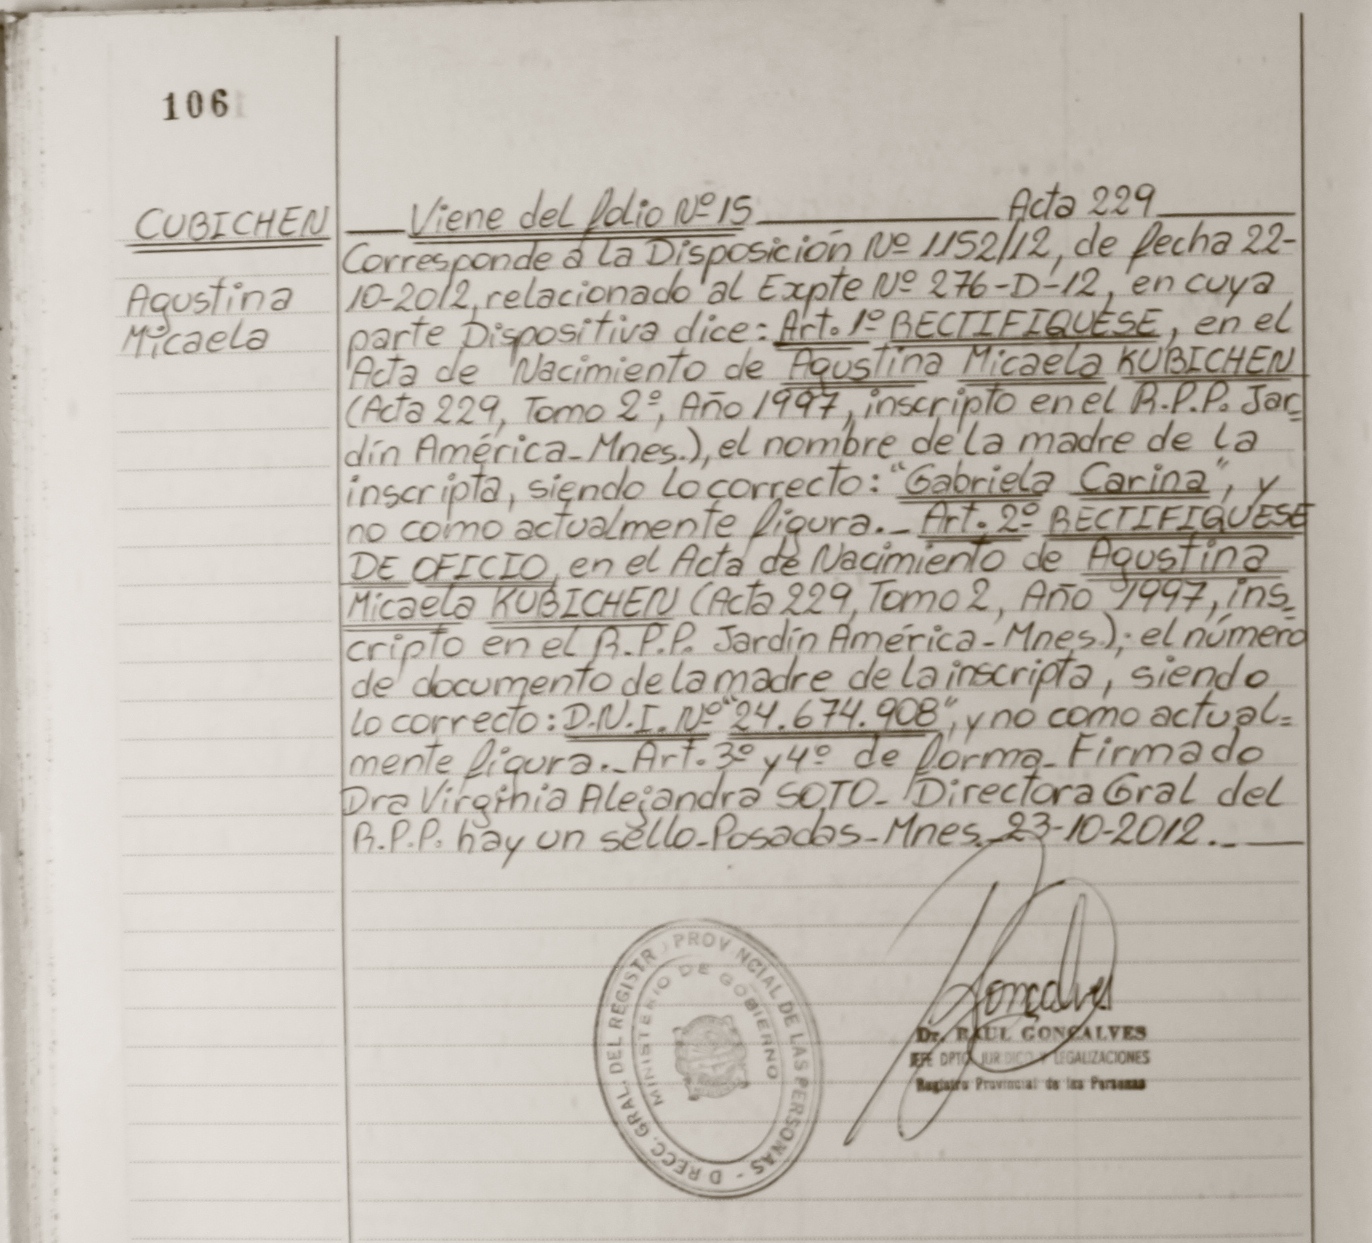 106
CUBICHEN
Agustina
Micaela
Viene del folio Nº 15 Acta 229
Corresponde a la Disposición Nº 1152/12, de fecha 22-
10-2012, relacionado al Expte Nº 276-D-12, en cuya
parte Dispositiva dice: Art. 1º RECTIFIQUESE, en el
Acta de Nacimiento de Agustina Micaela KUBICHEN
(Acta 229, Tomo 2º, Año 1997, inscripto en el R.P.P. Jar=
dín América-Mnes.), el nombre de la madre de la
inscripta, siendo lo correcto: "Gabriela Carina", y
no como actualmente figura._ Art. 2º RECTIFIQUESE
DE OFICIO, en el Acta de Nacimiento de Agustina
Micaela KUBICHEN (Acta 229, Tomo 2, Año 1997, ins=
cripto en el R.P.P. Jardín América-Mnes.); el número
de documento de la madre de la inscripta, siendo
lo correcto: D.N.I. Nº "24.674.908", y no como actual=
mente figura._ Art. 3º y 4º de forma_ Firmado
Dra Virginia Alejandra SOTO_ Directora Gral del
R.P.P. hay un sello_Posadas_Mnes_23-10-2012._
DIRECC. GRAL. DEL REGISTRO PROVINCIAL DE LAS PERSONAS -
MINISTERIO DE GOBIERNO
Gonçalves
Dr. RAUL GONÇALVES
JEFE DPTO JURIDICO Y LEGALIZACIONES
Registro Provincial de las Personas